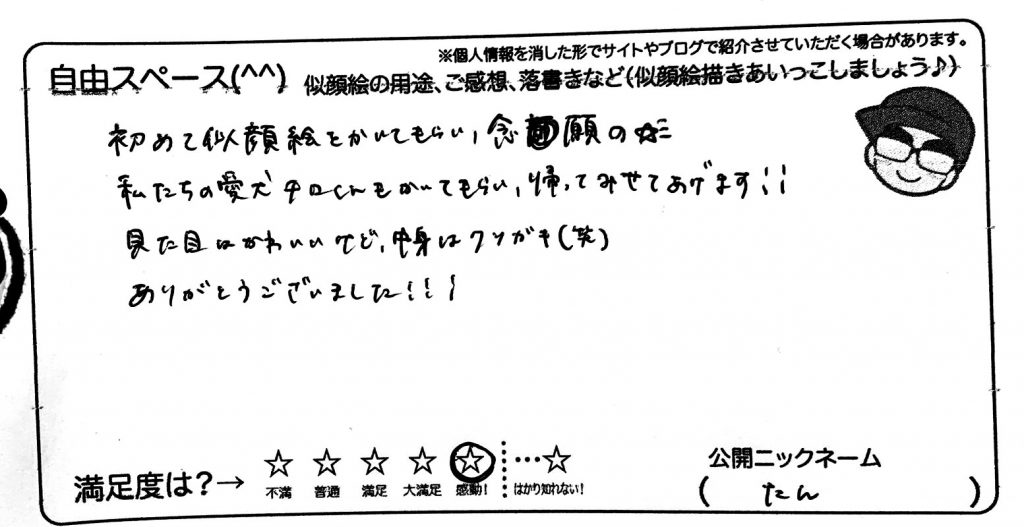 ※個人情報を消した形でサイトやブログで紹介させていただく場合があります。
自由スペース(^^) 似顔絵の用途、ご感想、落書きなど(似顔絵描きあいっこしましょう♪)
初めて似顔絵をかいてもらい、念願の☆ミ
私たちの愛犬チロくんもかいてもらい、帰ってみせてあげます!!
見た目はかわいいけど、中身はクソガキ(笑)
ありがとうございました!!!
満足度は?→ ☆ ☆ ☆ ☆ ☆ …☆
不満 普通 満足 大満足 感動! はかり知れない!
公開ニックネーム
( たん )